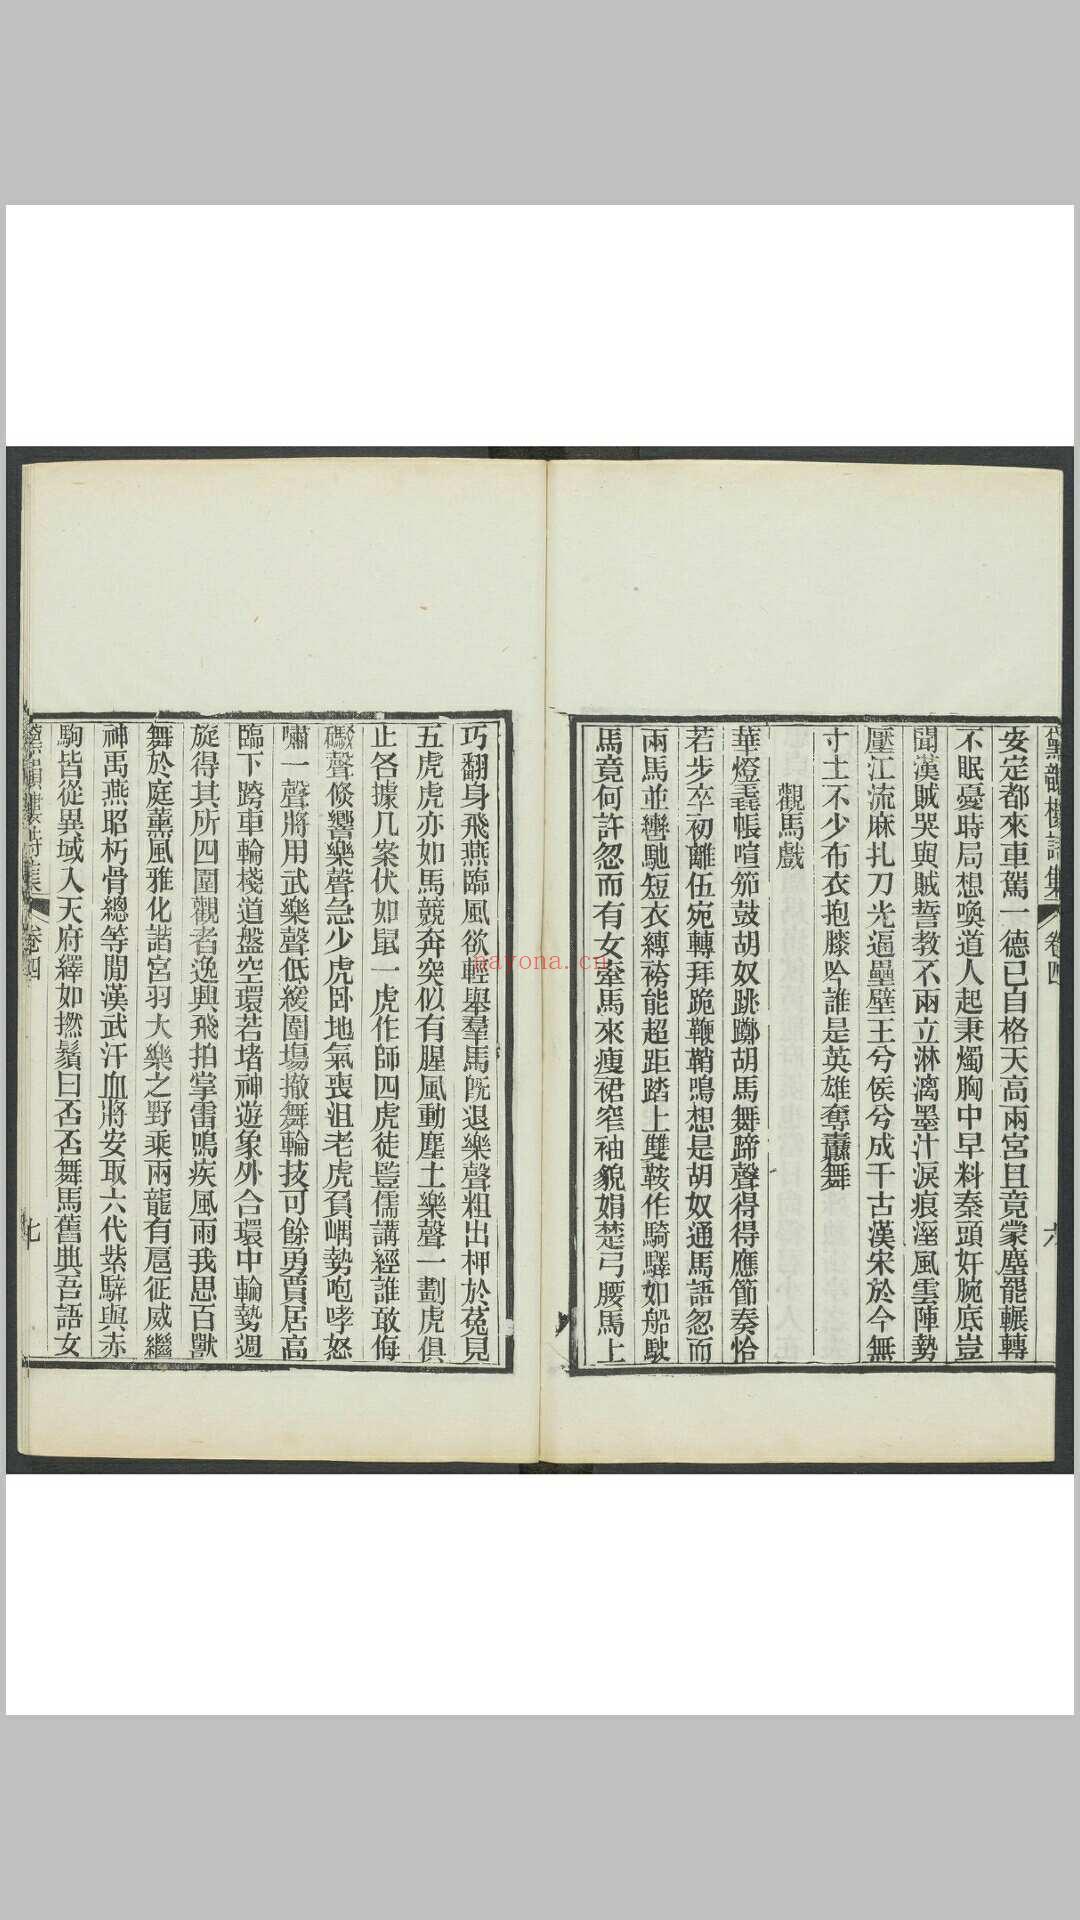 黛韻樓詩集　卷四　六
安定都來車駕一德已自格天高兩宮且竟蒙塵罷輾轉
不眠憂時局想喚道人起秉燭胸中早料秦頭奸腕底豈
聞漢賊哭與賊誓教不兩立淋漓墨汁淚痕溼風雲陣勢
壓江流麻扎刀光逼壘壁王兮侯兮成千古漢宋於今無
寸土不少布衣抱膝吟誰是英雄奪纛舞
觀馬戲
華燈毳帳喧笳鼓胡奴跳躑胡馬舞蹄聲得得應節奏恰
若步卒初離伍宛轉拜跪鞭鞘鳴想是胡奴通馬語忽而
兩馬並轡馳短衣縛袴能超距踏上雙鞍作騎驛如船駛
馬竟何許忽而有女牽馬來瘦裙窄袖貌娟楚弓腰馬上
巧翻身飛燕臨風欲輕舉羣馬旣退樂聲粗出柙於菟見
五虎虎亦如馬競奔突似有腥風動塵土樂聲一劃虎俱
止各據几案伏如鼠一虎作師四虎徒豈儒講經誰敢侮
礮聲倏響樂聲急少虎臥地氣喪沮老虎負嵎勢咆哮怒
嘯一聲將用武樂聲低緩圍場撤舞輪技可餘勇賈居高
臨下跨車輪棧道盤空環若堵神遊象外合環中輪勢週
旋得其所四圍觀者逸興飛拍掌雷鳴疾風雨我思百獸
舞於庭薰風雅化諧宮羽大樂之野乘兩龍有扈征威繼
神禹燕昭朽骨總等閒漢武汗血將安取六代紫騂與赤
駒皆從異域入天府繹如撚鬚曰否否舞馬舊典吾語女
黛韻樓詩集　卷四　七
nayona.cn